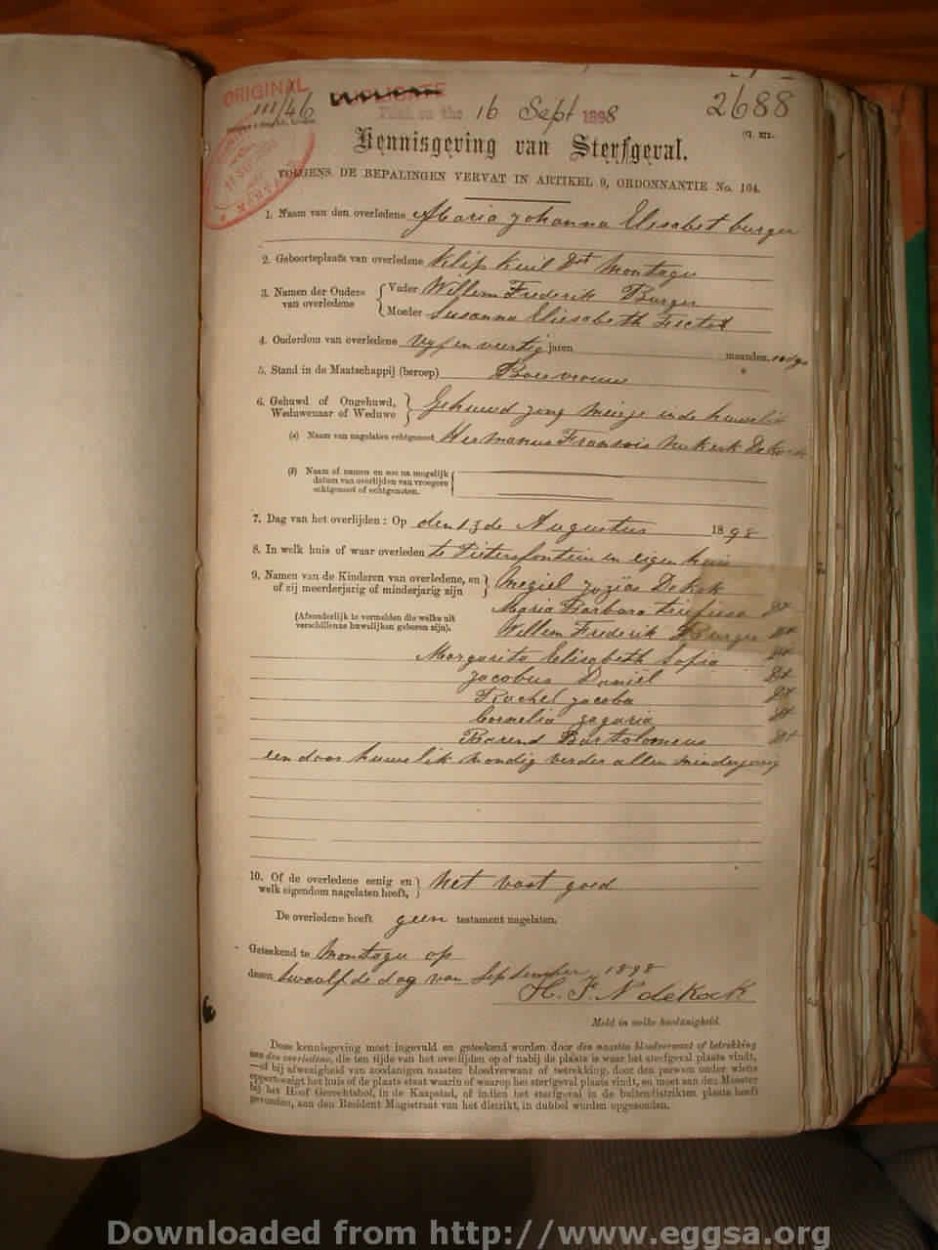 ORIGINAL
111/46
DUPLICATE
Filed on the 16 Sept 1898
2688
Kennisgeving van Sterfgeval.
VOLGENS DE BEPALINGEN VERVAT IN ARTIKEL 9, ORDONNANTIE No. 104.
1. Naam van den overledene Maria Johanna Elesabet burger
2. Geboorteplaats van overledene Klip Kuil Dst Montagu
3. Namen der Ouders van overledene { Vader Willem Frederik Burger
Moeder Susanna Eliesabeth
4. Ouderdom van overledene Vyf en veertig jaren maanden
5. Stand in de Maatschappij (beroep) Boervrouw
6. Gehuwd of Ongehuwd, Weduwenaar of Weduwe } Gehuwd
(a) Naam van nagelaten echtgenoot Hermanus Fransois Nukerk De Kock
(b) Naam of namen en zoo na mogelijk
datum van overlijden van vroegere
echtgenoot of echtgenoten.
7. Dag van het overlijden: Op den 13de Augustus 1898
8. In welk huis of waar overleden te Pietersfontein in eigen huis
9. Namen van de Kinderen van overledene, en of zij meerderjarig of minderjarig zijn } Megiel Jozias De Kok
(Afzonderlijk te vermelden die welke uit
verschillende huwelijken geboren zijn).
Maria Barbara
Willem Frederik Burger
Margarita Elisabeth Sofia
Jacobus Daniel
Rachel Jacoba
Cornelia
Barend Bartolomeus
een door huwelik mondig verder allen minderjarig
10. Of de overledene eenig en welk eigendom nagelaten heeft, } Net vast goed
De overledene heeft geen testament nagelaten.
Geteekend te Montagu op
dezen twaalfde dag van September 1898
H. F. N de Kock
Meld in welke hoedanigheid.
Deze kennisgeving moet ingevuld en geteekend worden door den naasten bloedverwant of betrekking
van den overledene, die ten tijde van het overlijden op of nabij de plaats is waar het sterfgeval plaats vindt,
—of bij afwezigheid van zoodanigen naasten bloedverwant of betrekking, door den persoon onder wiens
oppertoezigt het huis of de plaats staat waarin of waarop het sterfgeval plaats vindt, en moet aan den Meester
bij het Hoof Geregtshof, in de Kaapstad, of indien het sterfgeval in de buitendistrikten plaats heeft
gevonden, aan den Resident Magistraat van het distrikt, in dubbel worden opgezonden.
Downloaded from http://www.eggsa.org